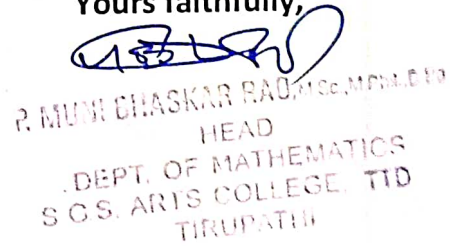 Yours faithfully,
P. MUNI BHASKAR RAO, MSc, M.Phil.
HEAD
DEPT. OF MATHEMATICS
S G S. ARTS COLLEGE, TTD
TIRUPATHI